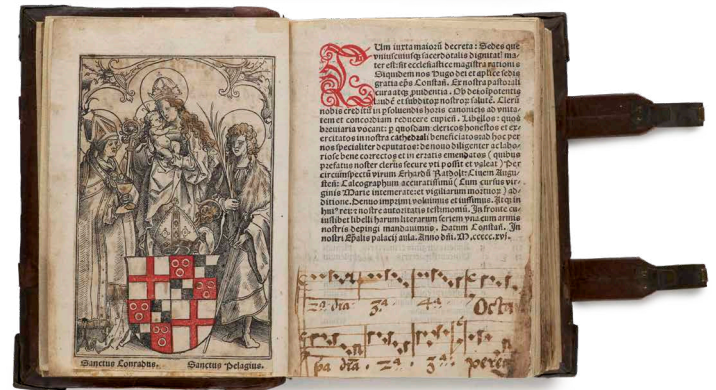 Sanctus Conradus. Sanctus Pelagius.
CUm iuxta maiorũ decreta: Sedes que
vniuscuiusqꝫ sacerdotalis dignitatꝭ ma-
ter est: sit ecclesiastice magistra rationis
Siquidem nos Hugo dei et aplice sedis
gratia ep̃s Constañ. Ex nostra pastorali
cura atqꝫ prudentia. Ob dei oĩpotentis
laudẽ et subditoꝝ nostroꝝ salutẽ. Clerũ
nobis creditũ in psoluendis horis canonicis ad vnita-
tem et concordiam reducere cupieñ. Libellos: quos
breuiaria vocant: p quosdam clericos honestos et ex-
ercitatos in nostra cathedrali beneficiatos ad hoc per
nos specialiter deputatos: de nouo diligenter ac labo-
riose bene correctos et in erratis emendatos (quibus
praefatus noster clerus secure vti possit et valeat) Per
circumspectũ virum Erhardũ Ratdolt: Ciuem Augu-
steñ: Calcographum accuratissimũ (Cum cursu vir-
ginis Marie intemerate: et vigiliarum mortuoꝝ) ad-
ditione. Denuo imprimi volumus et iussimus. Atqꝫ in
huiꝰ rei: et nostre autoritatis testimoniũ. In fronte cu-
iuslibet libelli harum literarum seriem vna cum armis
nostris depingi mandauimus. Datum Constañ. In
nostri Ep̃alis palacij aula. Anno dñi. M.ccccc.xvj.
2ᵃ dĩa. 3ᵃ. 4ᵃ. Octa
2ᵃ. 3ᵃ.